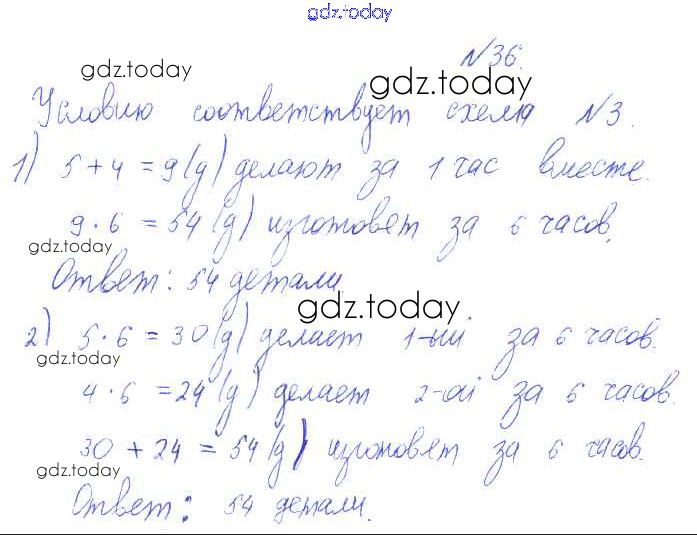 gdz.today
№36.
gdz.today
gdz.today
Условию соответствует схема №3.
1) 5 + 4 = 9 (д) делают за 1 час вместе.
9 · 6 = 54 (д) изготовят за 6 часов.
gdz.today
Ответ: 54 детали.
gdz.today
2) 5 · 6 = 30 (д) делает 1-ый за 6 часов.
gdz.today
4 · 6 = 24 (д) делает 2-ой за 6 часов.
30 + 24 = 54 (д) изготовят за 6 часов.
gdz.today
Ответ: 54 детали.